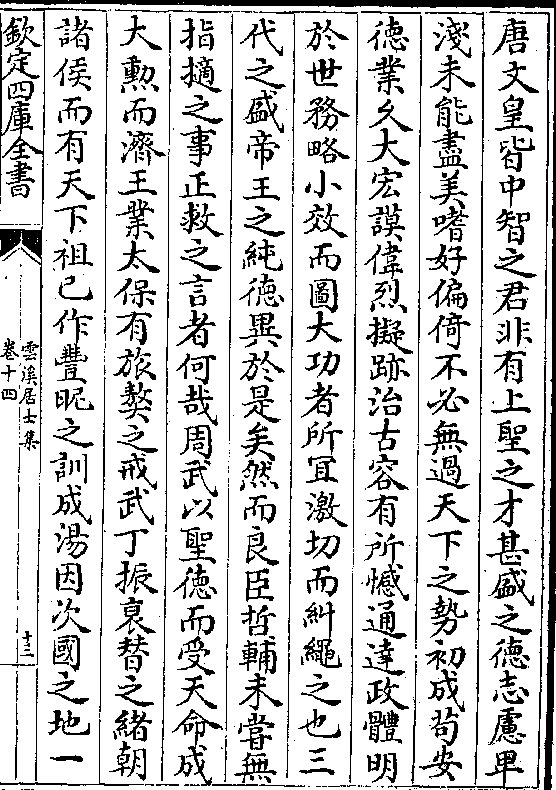 唐文皇皆中智之君非有上聖之才甚盛之德志慮卑
淺未能盡美嗜好偏倚不必無過天下之勢初成茍安
德業久大宏謨偉烈擬跡治古容有所憾通達政體明
於世務略小效而圖大功者所宜激切而糾繩之也三
代之盛帝王之純德異於是矣然而良臣哲輔未嘗無
指擿之事正救之言者何哉周武以聖德而受天命成
大勲而濟王業太保有旅獒之戒武丁振衰替之緒朝
諸侯而有天下祖已作豐昵之訓成湯因次國之地一
欽定四庫全書
雲溪居士集
卷十四
十三